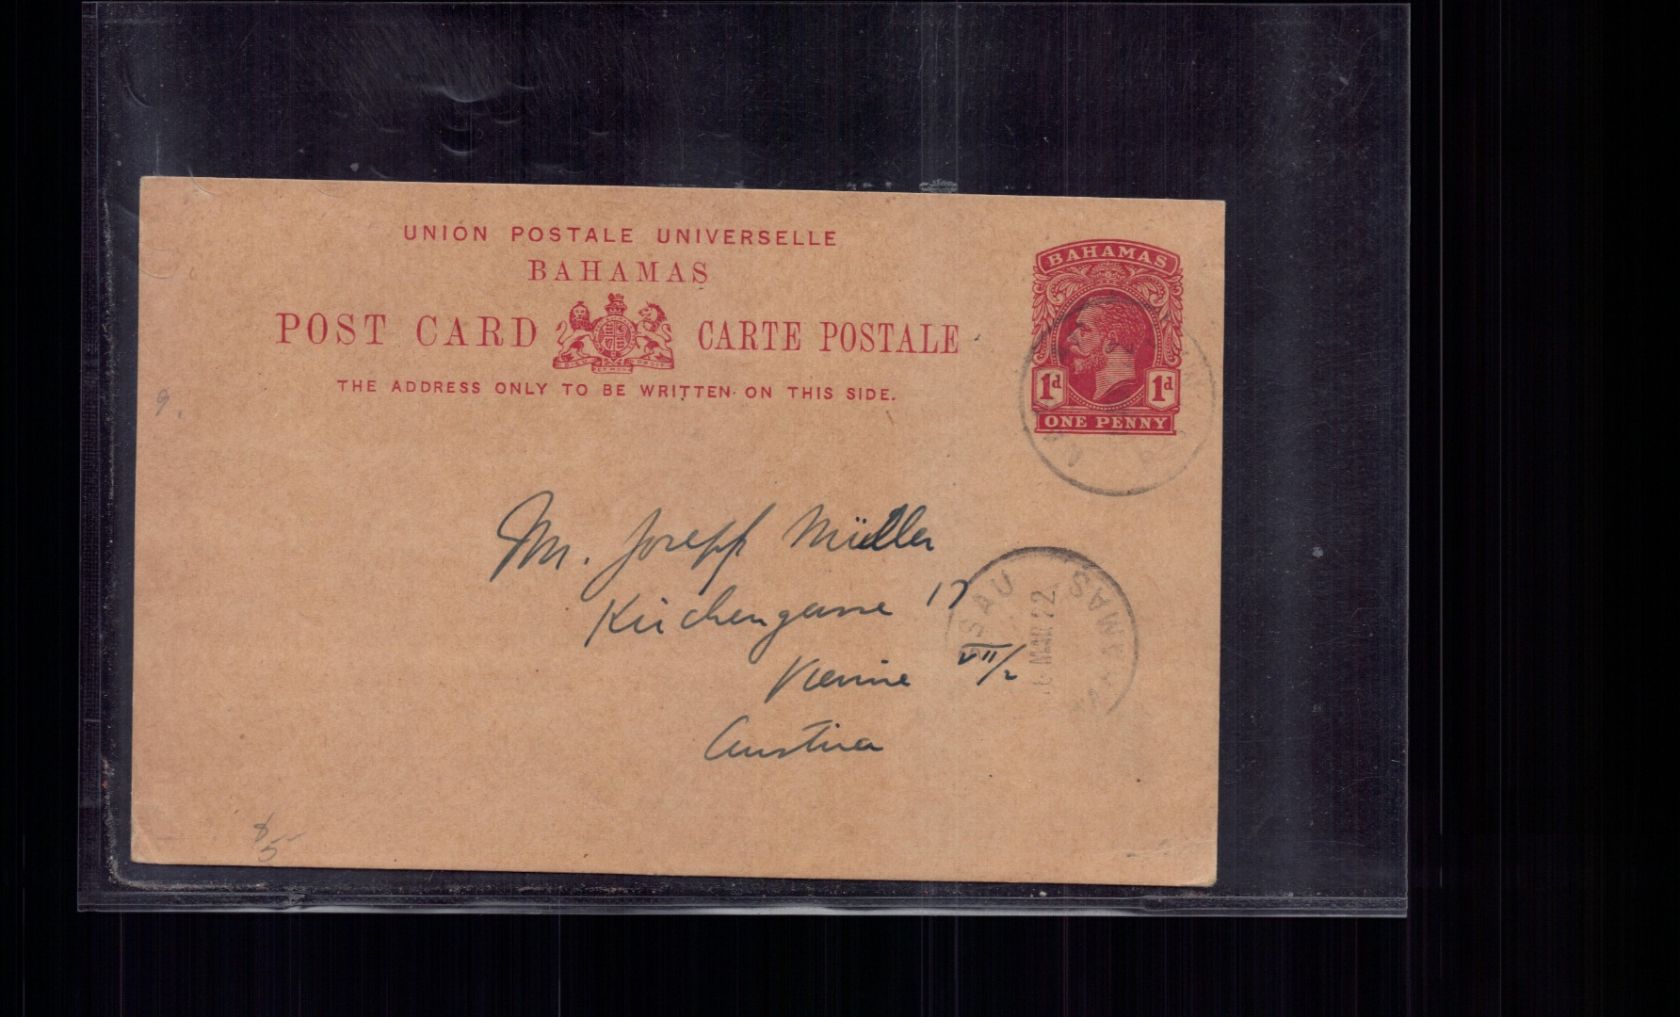 UNION POSTALE UNIVERSELLE
BAHAMAS
POST CARD CARTE POSTALE
THE ADDRESS ONLY TO BE WRITTEN ON THIS SIDE.
BAHAMAS
1d 1d
ONE PENNY
9.
Mr. Joseph Müller
Kirchengasse 17
Vienne VII/2
Austria
MAR 22
$5-